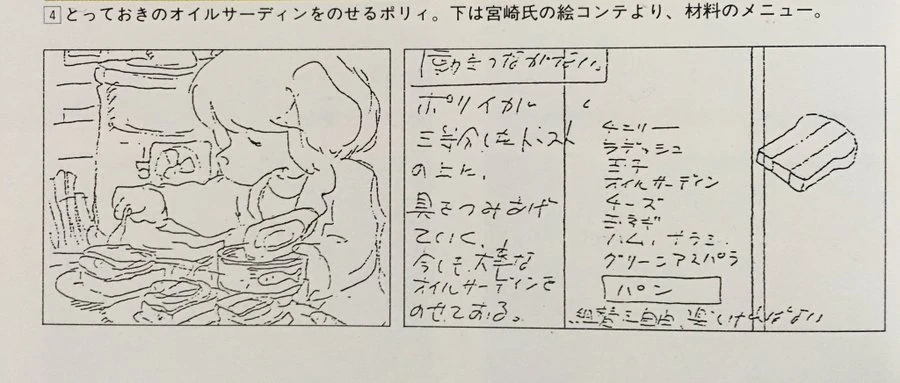 4 とっておきのオイルサーディンをのせるポリィ。下は宮崎氏の絵コンテより、材料のメニュー。
動きつながない
ポリイガル
三等分したトースト
の上に、
具をつみあげ
ていく、
今しも、大事な
オイルサーディンを
のせておる。
チェリー
ラデッシュ
玉子
オイルサーディン
チーズ
玉ネギ
ハム、サラミ
グリーンアスパラ
パン
組合セ自由